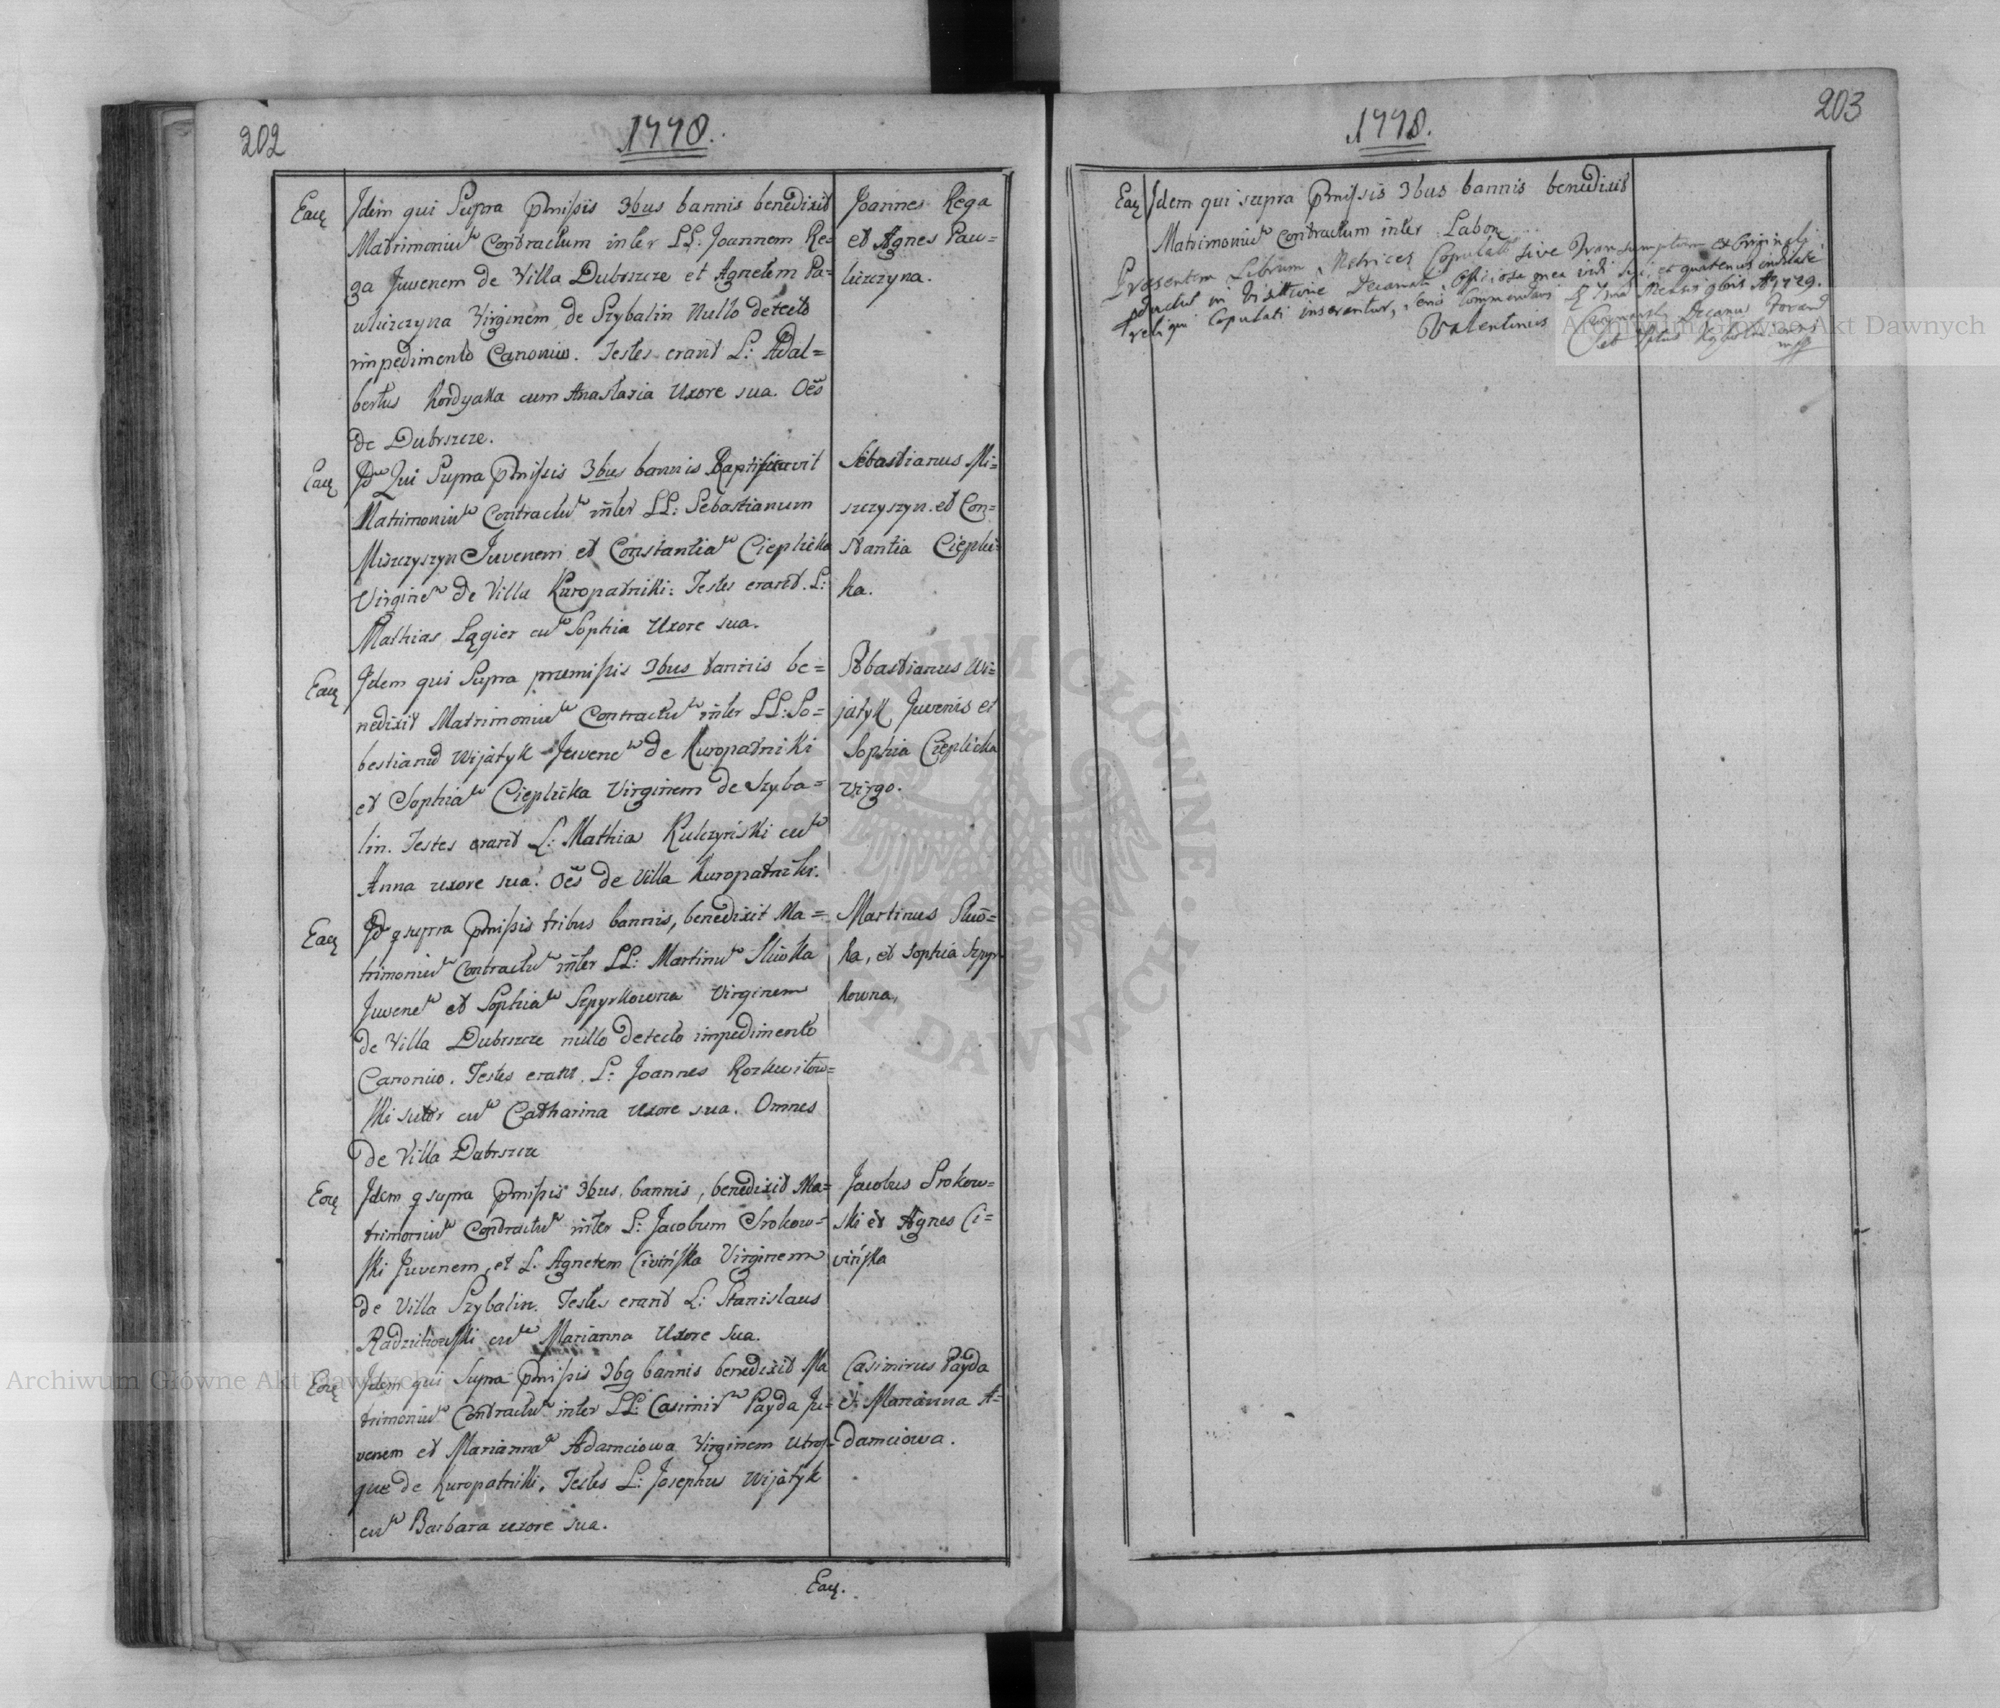 202
1778.
Eaq̃ Idem qui Supra p̄missis 3bus bannis benedixit
Matrimoniu͂ Contractum inter LL: Joannem Re=
ga Juvenem de Villa Dubrszcze et Agnetem Pa=
wluszczyna Virginem de Szybalin Nullo detecto
impedimento Canonico. Testes erant L: Adal=
bertus Kordyaka cum Anastasia Uxore sua. Oēs
de Dubrszcze.
Joannes Rega
et Agnes Paw=
luszczyna.
Eaq̃ Id͂ Qui Supra p̄missis 3bus bannis
Matrimoniu͂ Contractu͂ inter LL: Sebastianum
Miszczyszyn Juvenem et Constantia͂ Cieplicka
Virgine͂ de Villa Kuropatniki: Testes erant. L:
Mathias Lągier cu͂ Sophia Uxore sua.
Sebastianus Mi=
szczyszyn et Con=
stantia Ciepli=
ka.
Eaq̃ Idem qui Supra præmissis 3bus bannis be=
nedixit Matrimoniu͂ Contractu͂ inter LL: Se=
bestianu Wijatyk Juvene͂ de Kuropatniki
et Sophia͂ Cieplicka Virginem de Szyba=
lin. Testes erant L: Mathia Kulczyński cu͂
Anna uxore sua. Oēs de Villa Kuropatniki.
Sebastianus Wi=
jatyk Juvenis et
Sophia Cieplicka
Virgo.
Eaq̃ Id͂ q supra p̄missis tribus bannis, benedixit Ma=
trimoniu͂ Contractu͂ inter LL: Martinu͂ Sliwka
Juvene͂ et Sophia͂ Szpyrkowna Virginem
de Villa Dubrszcze nullo detecto impedimento
Canonico. Testes erant. L: Joannes Rozkwitow=
ski sutor cu͂ Catharina uxore sua. Omnes
de Villa Dubrszcze
Martinus Sliw̄=
ka, et Sophia Szpyr=
kowna,
Eoq̃ Idem q supra p̄missis 3bus. bannis, benedixit Ma=
trimoniu͂ Contractu͂ inter L: Jacobum Srokow=
ski Juvenem, et L. Agnetem Civińska Virginem
de Villa Szybalin. Testes erant L: Stanislaus
Radziłiowski cu͂ Marianna Uxore Sua.
Jacobus Srokow=
ski et Agnes Ci=
vińska
Eoq̃ Idem qui Supra p̄missis 3bq bannis benedixit Ma
trimoniu͂ Contractu͂ inter LL: Casimiru͂ Payda Ju=
venem et Marianna͂ Adamciowa Virginem utros=
que de Kuropatniki. Testes L: Josephus Wijatyk
cu͂ Barbara uxore sua.
Casimirus Payda
et Marianna A=
damciowa.
Eaq̃.
203
1778.
Eaq̃ Idem qui supra p̄missis 3bus bannis benedixit
Matrimoniu͂ Contractum inter Labor
Præsentem Librum Metrices Copulator sive Transumptum ex Originali
reliqui Copulati inserantur, serio Commendavi
Valentinus Decanus
Archiwum Główne Akt Dawnych
Archiwum Główne Akt Dawnych
ARCHIWUM GŁÓWNE AKT DAWNYCH